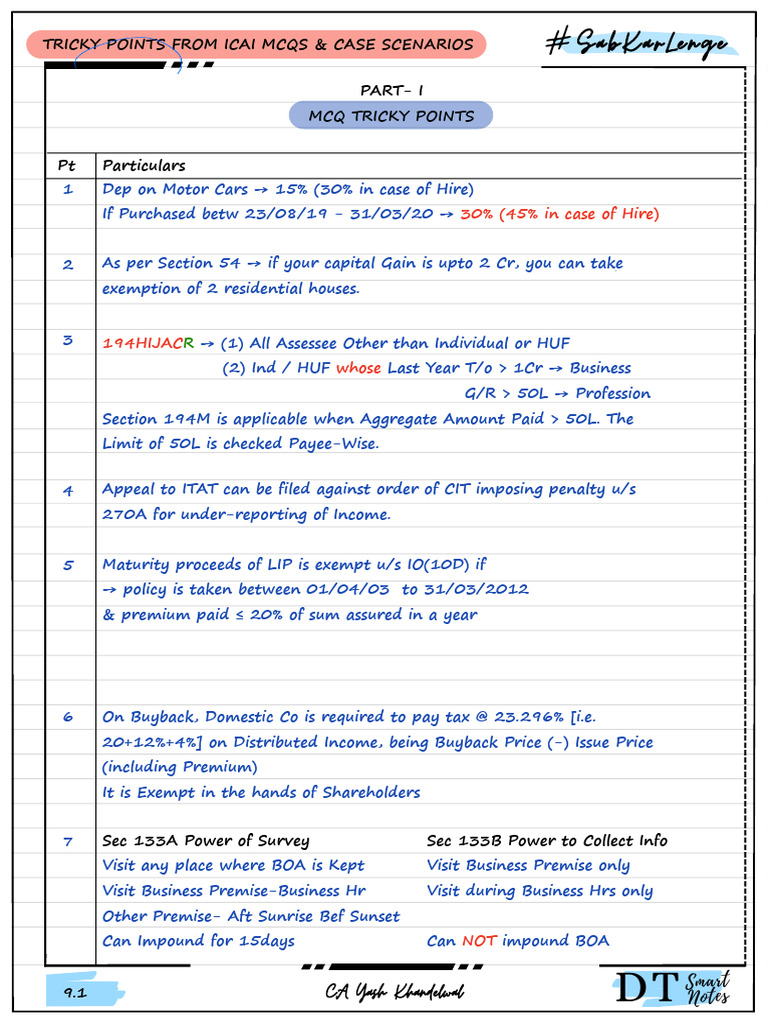 TRICKY POINTS FROM ICAI MCQS & CASE SCENARIOS
# SabKarLenge
PART- I
MCQ TRICKY POINTS
Pt Particulars
1 Dep on Motor Cars → 15% (30% in case of Hire)
If Purchased betw 23/08/19 - 31/03/20 → 30% (45% in case of Hire)
2 As per Section 54 → if your capital Gain is upto 2 Cr, you can take
exemption of 2 residential houses.
3 194HIJACR → (1) All Assessee Other than Individual or HUF
(2) Ind / HUF whose Last Year T/o > 1Cr → Business
G/R > 50L → Profession
Section 194M is applicable when Aggregate Amount Paid > 50L. The
Limit of 50L is checked Payee-Wise.
4 Appeal to ITAT can be filed against order of CIT imposing penalty u/s
270A for under-reporting of Income.
5 Maturity proceeds of LIP is exempt u/s IO(10D) if
→ policy is taken between 01/04/03 to 31/03/2012
& premium paid ≤ 20% of sum assured in a year
6 On Buyback, Domestic Co is required to pay tax @ 23.296% [i.e.
20+12%+4%] on Distributed Income, being Buyback Price (-) Issue Price
(including Premium)
It is Exempt in the hands of Shareholders
7 Sec 133A Power of Survey Sec 133B Power to Collect Info
Visit any place where BOA is Kept Visit Business Premise only
Visit Business Premise-Business Hr Visit during Business Hrs only
Other Premise- Aft Sunrise Bef Sunset
Can Impound for 15days Can NOT impound BOA
9.1 CA Yash Khandelwal DT Smart Notes